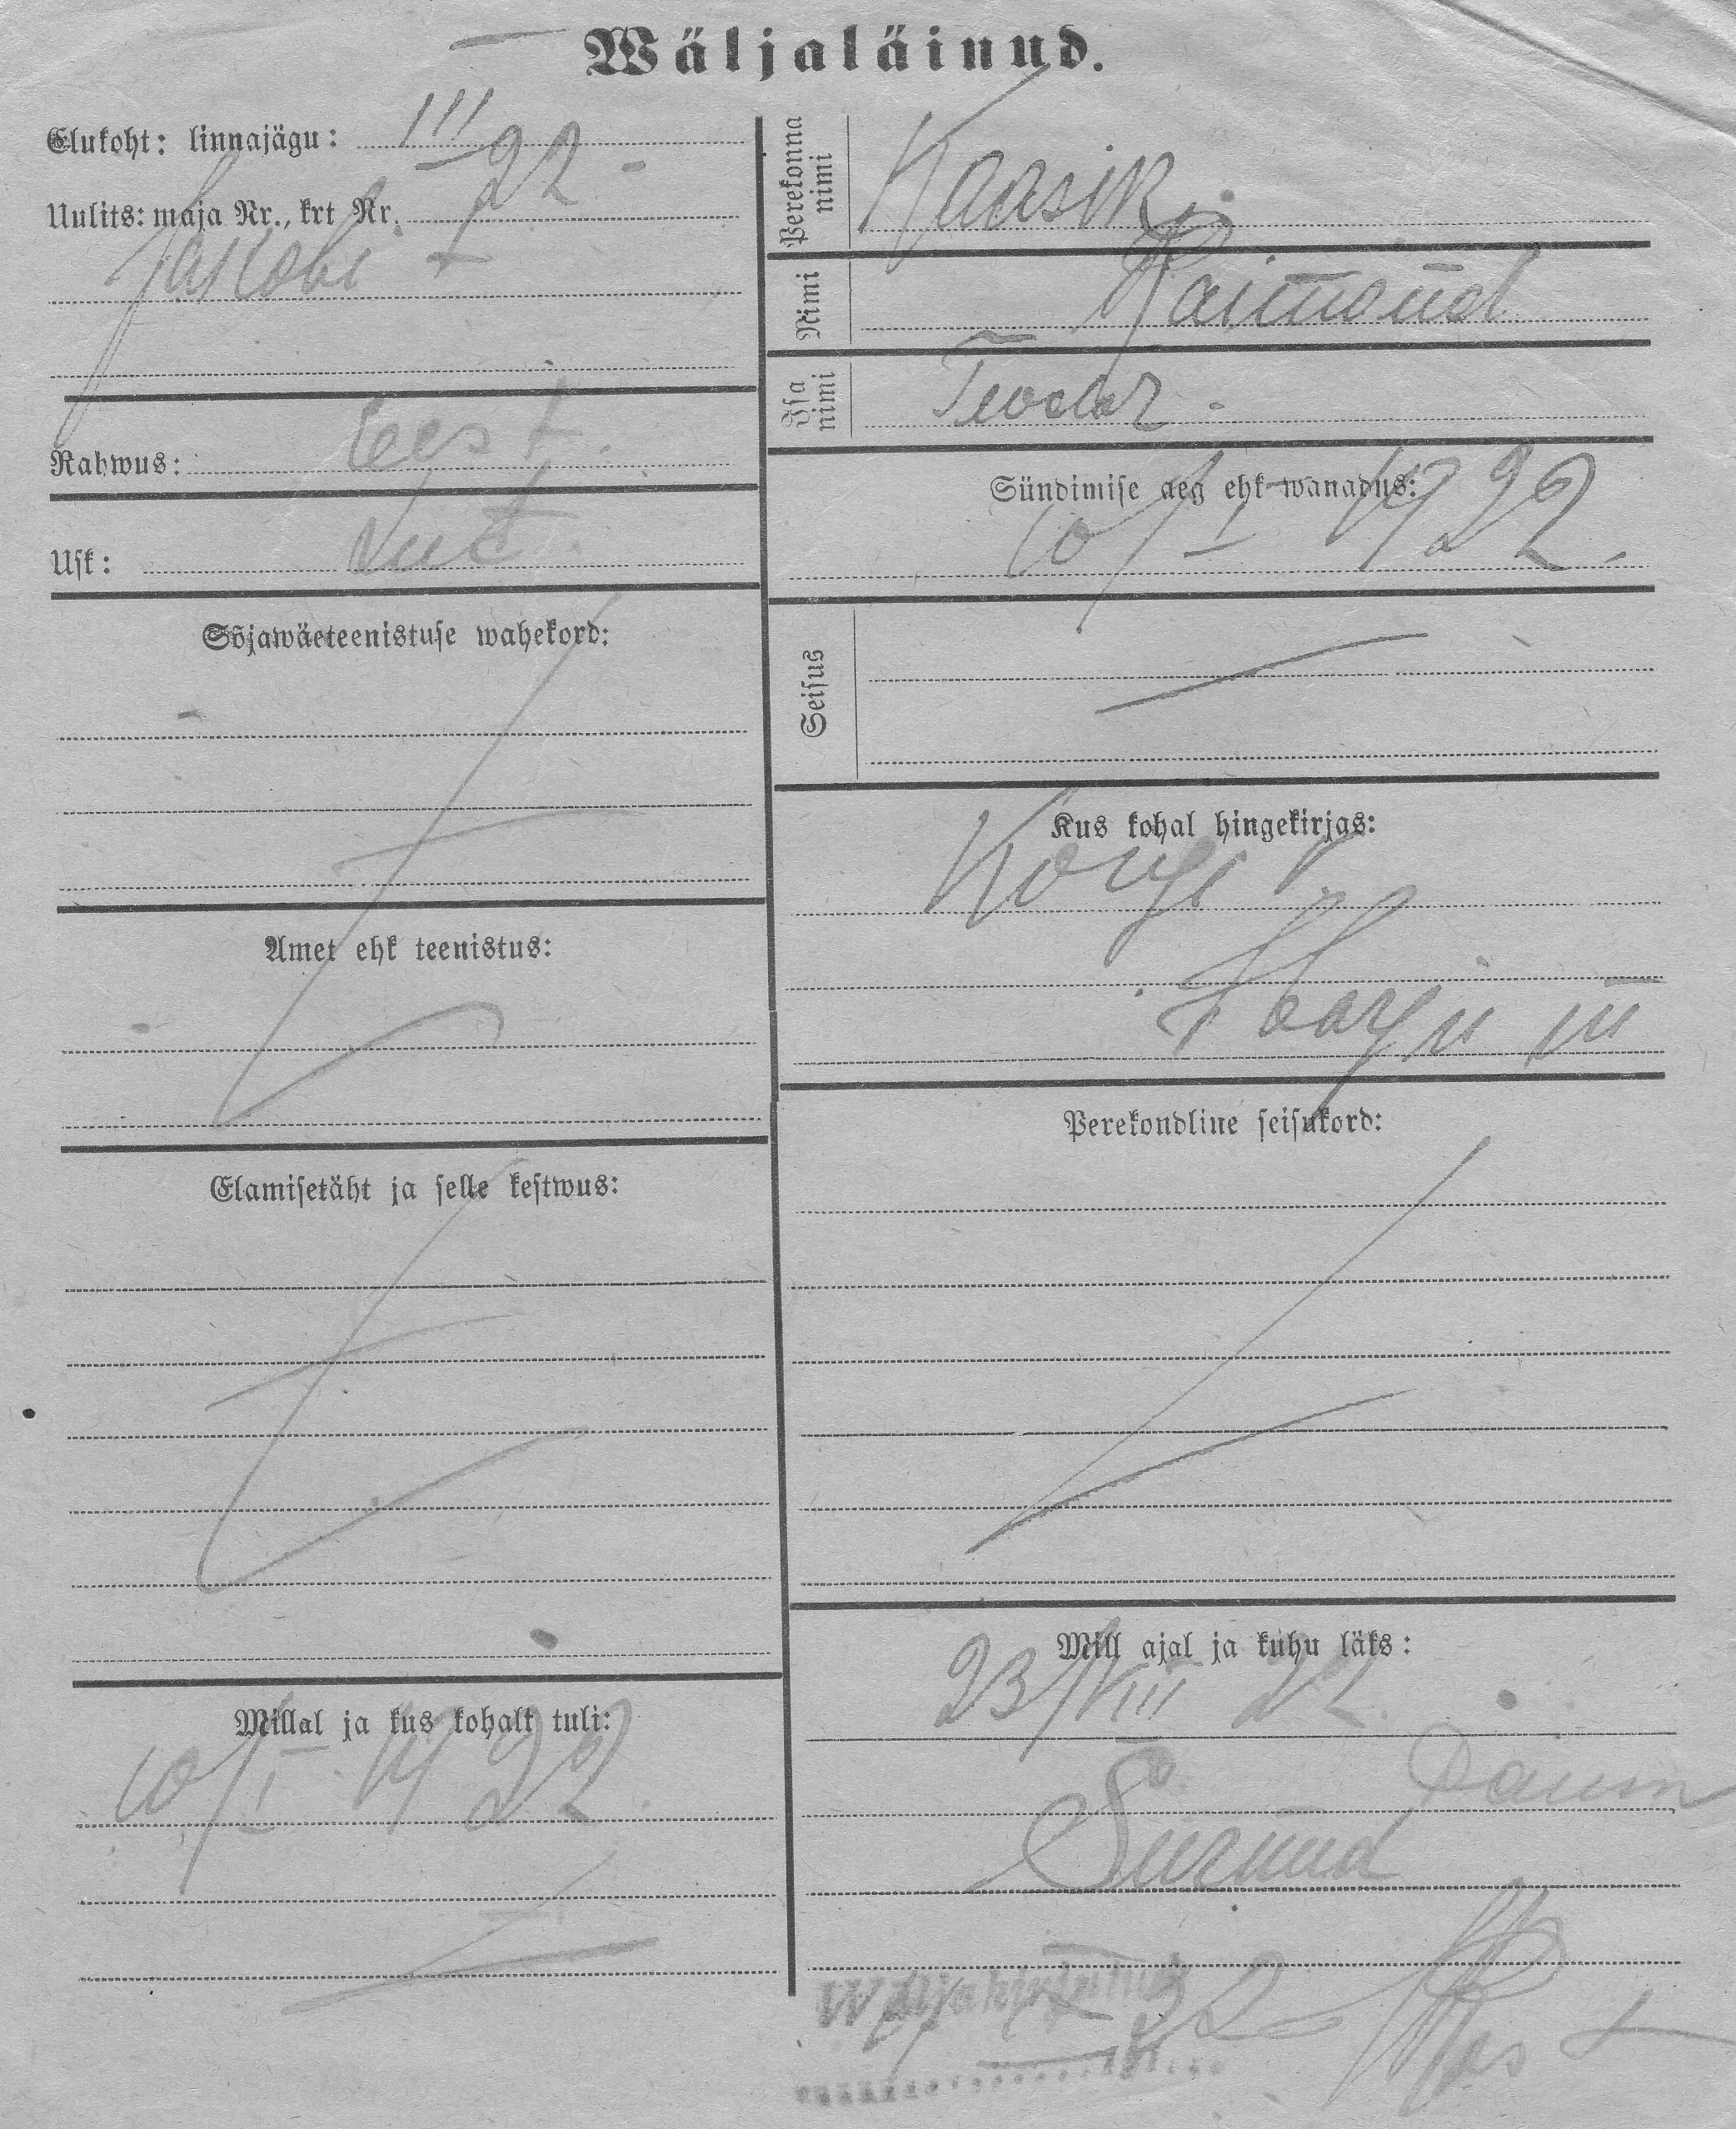 Wäljaläinud.
Elukoht: linnajägu: III
Uulits: maja Nr., krt Nr. 22 -
Jakobi
Rahwus: Eest.
Usk: Lut.
Sõjawäeteenistuse wahekord:
Amet ehk teenistus:
Elamisetäht ja selle kestwus:
Millal ja kus kohalt tuli:
10/I 1922.
Perekonna nimi Kaasik
Nimi Raimond
Isa nimi Teodor -
Sündimise aeg ehk wanadus:
10/I 1922.
Seisus
Kus kohal hingekirjas:
Harju m
Perekondline seisukord:
Mill ajal ja kuhu läks:
23/VIII 22.
Surnud
Wäljakirjutatud